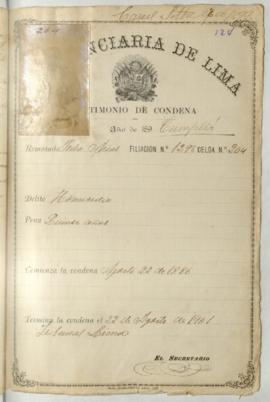 204
124
NCIARIA DE LIMA
TIMONIO DE CONDENA
Año de 189
Rematado FILIACION N.º 1295 CELDA N.º 204
Delito Homicidio
Pena Quince años
Comienza la condena Agosto 22 de 1886
Termina la condena el 22 de Agosto de 1901
Tribunal
EL SECRETARIO